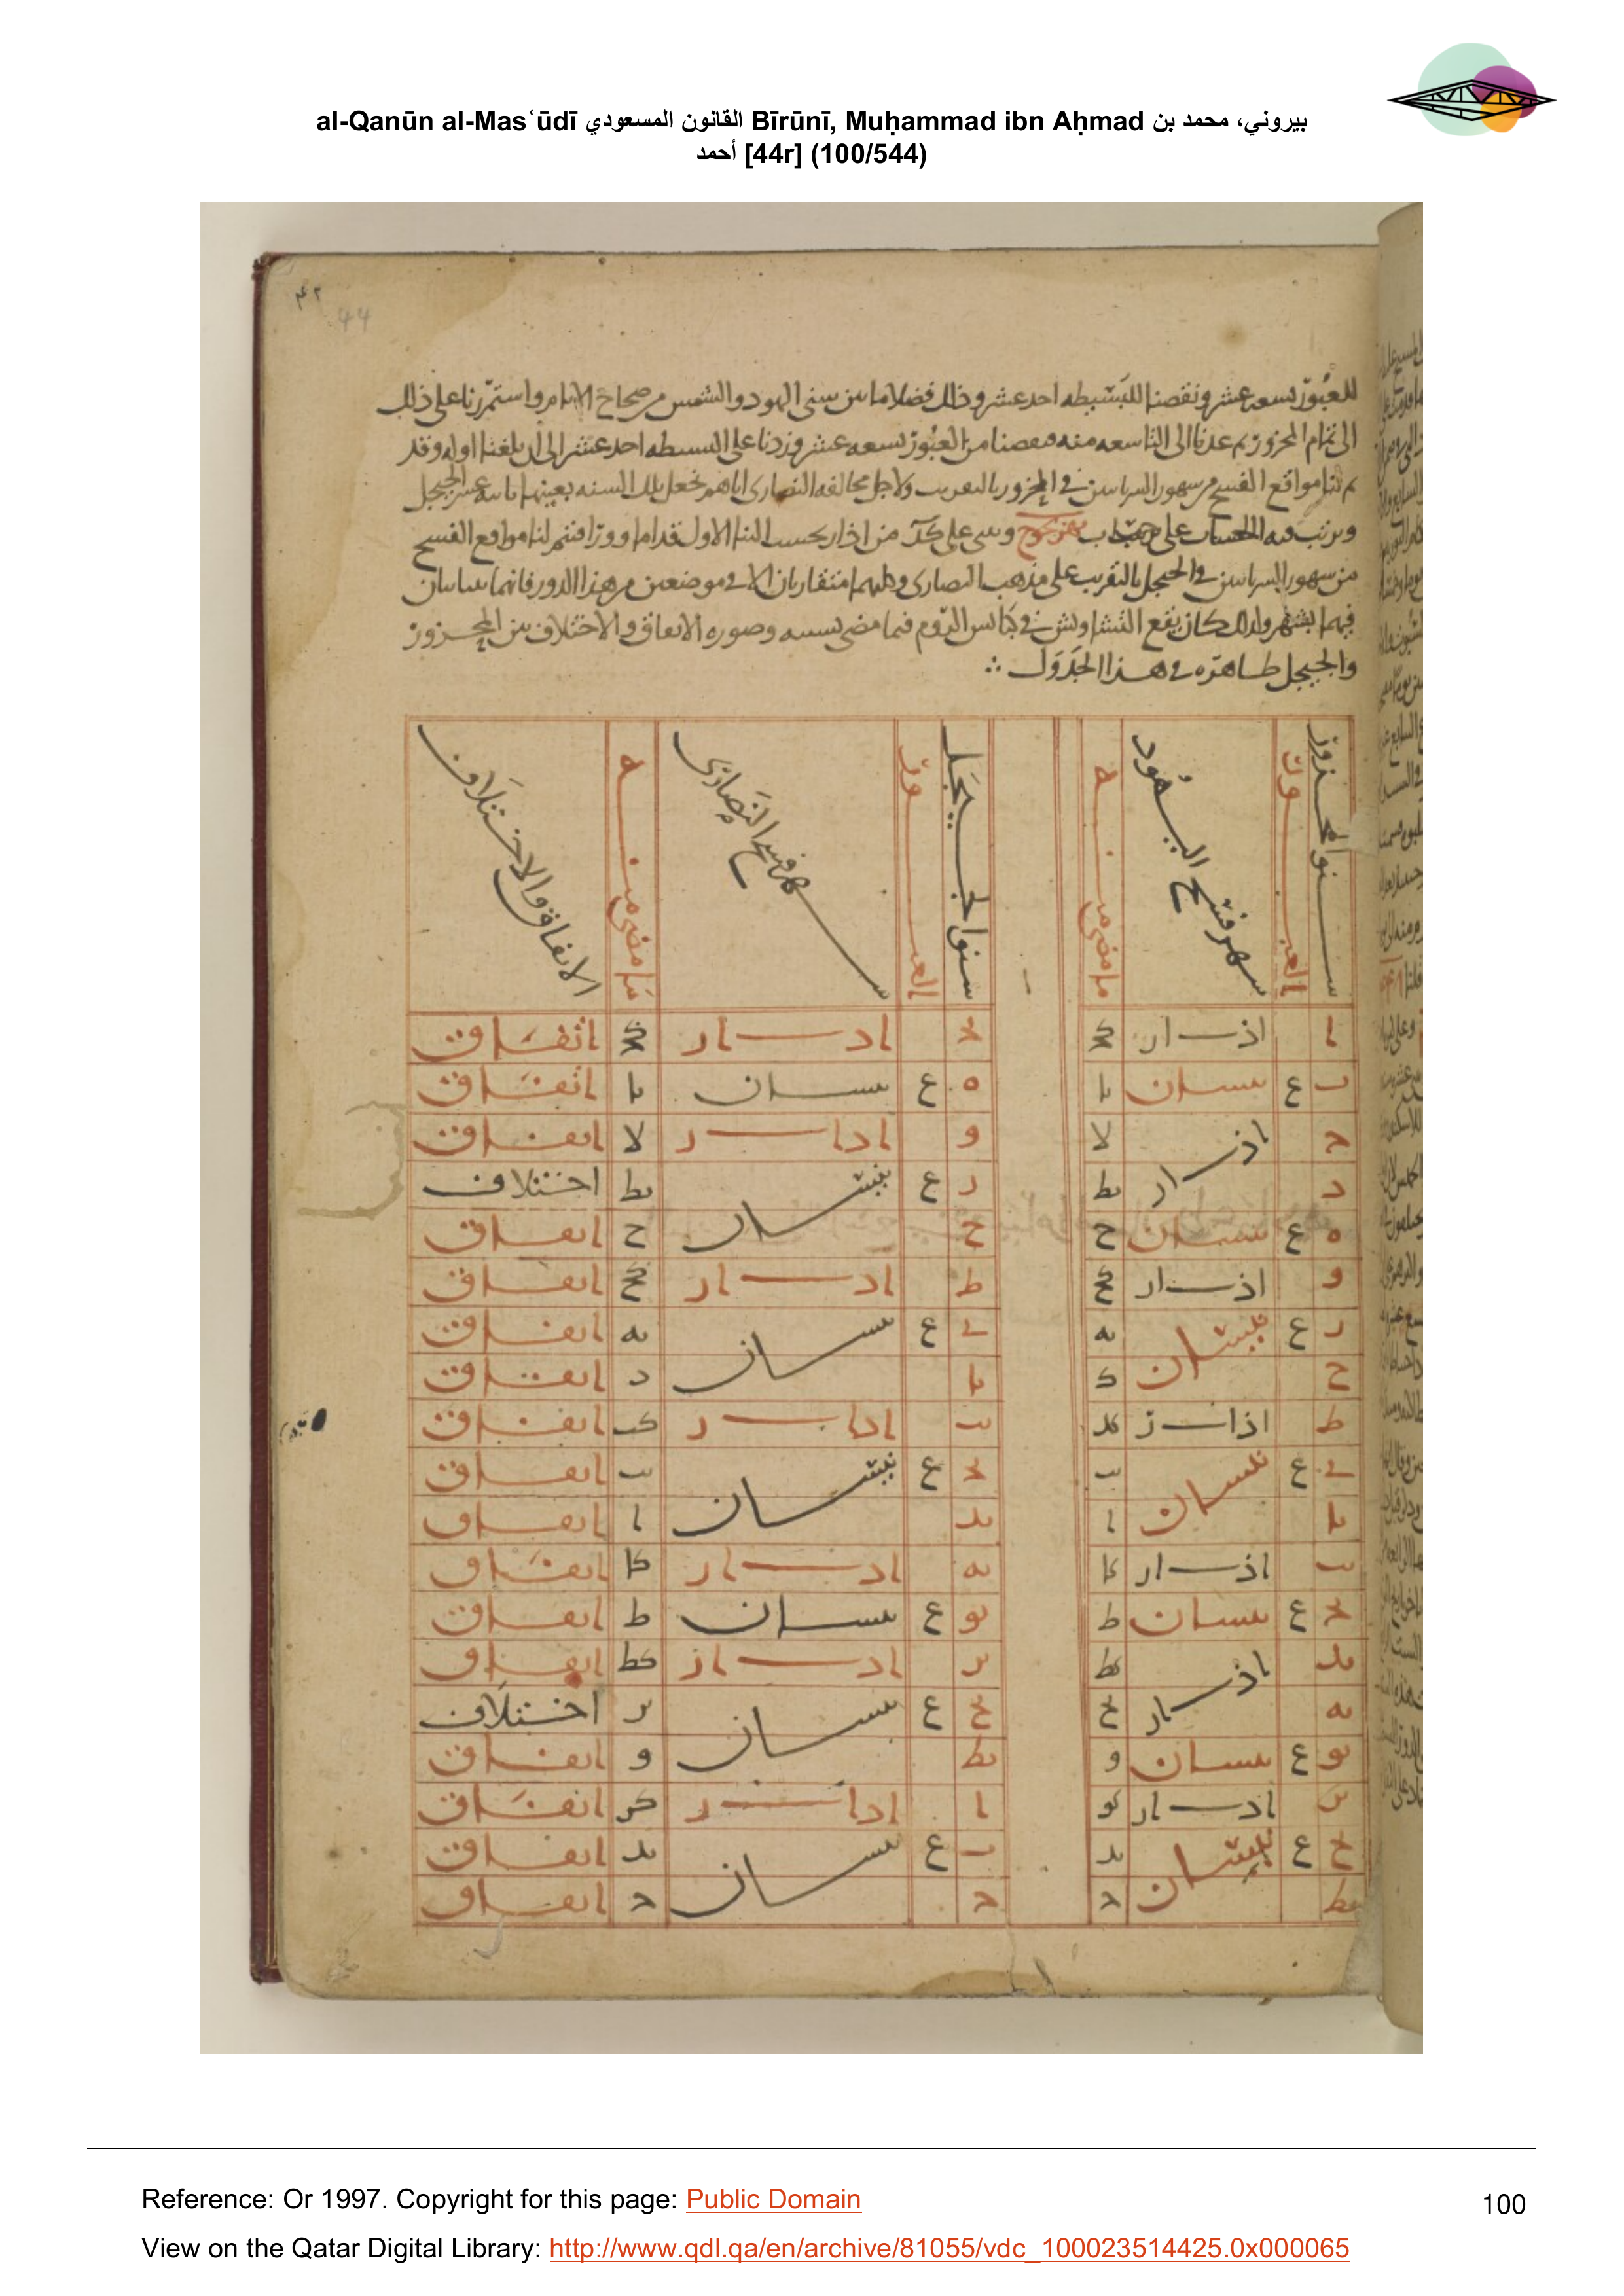 al-Qanūn al-Masʿūdī القانون المسعودي Bīrūnī, Muḥammad ibn Aḥmad بيروني، محمد بن
أحمد [44r] (100/544)
44
للعبور تسعه عشر ونقصنا للبسيطه احد عشر وذلك فضل ما بين سنى اليهود والشمس من صحاح الايام واستمررنا على ذلك
الى تمام المحزور ثم عدنا الى التاسعه منه فنقصنا من العبور تسعه عشر وزدنا على البسيطه احد عشر الى ان بلغنا اوله وقد
مواقع الفسح من شهور السريانيين في المحزور بالتقريب ولاجل مخالفه النصارى اياهم نجعل تلك السنه بعينها ثانيه عشر الجيجل
ونرتب فيه الحساب على حساب بهزيجوح وبنى على كا من اذار بحسب البنا الاول قداما وورا فتتم لنا مواقع الفسح
من شهور السريانيين في الجيجل بالتقريب على مذهب النصارى وكلاهما متقاربان الا في موضعين من هذا الدور فانهما يتباينان
فيهما بشهر ولذلك كان يقع التشاوش في كنايس الروم فيما مضى بسببه وصوره الاتفاق والاختلاف بين المحزور
والجيجل ظاهره في هذا الجدول
سنوا المحزور | العبور | شهر فسح اليهود | ما مضى منه | سنوا الجيجل | العبور | شهر فسح النصارى | ما مضى منه | الاتفاق والاختلاف
ا | اذار | كج | د | اذار | كج | اتفاق
ب | ع | نيسان | يا | ه | ع | نيسان | يا | اتفاق
ج | اذار | لا | و | اذار | لا | اتفاق
د | يط | ز | ع | نيسان | يط | اختلاف
ه | ع | نيسان | ح | ح | ح | اتفاق
و | اذار | كح | ط | اذار | كح | اتفاق
ز | ع | نيسان | يه | ى | ع | نيسان | يه | اتفاق
ح | د | يا | د | اتفاق
ط | اذار | كد | يب | اذار | كب | اتفاق
ى | ع | نيسان | يب | يج | ع | نيسان | يب | اتفاق
يا | ا | يد | ا | اتفاق
يب | اذار | كا | يه | اذار | كا | اتفاق
يج | ع | نيسان | ط | يو | ع | نيسان | ط | اتفاق
يد | اذار | كط | يز | اذار | كط | اتفاق
يه | يح | يح | ع | نيسان | يز | اختلاف
يو | ع | نيسان | و | يط | و | اتفاق
يز | اذار | كو | ا | اذار | كو | اتفاق
يح | ع | نيسان | يد | ب | ع | نيسان | يد | اتفاق
يط | ج | ج | ج | اتفاق
Reference: Or 1997. Copyright for this page: Public Domain
100
View on the Qatar Digital Library: http://www.qdl.qa/en/archive/81055/vdc_100023514425.0x000065